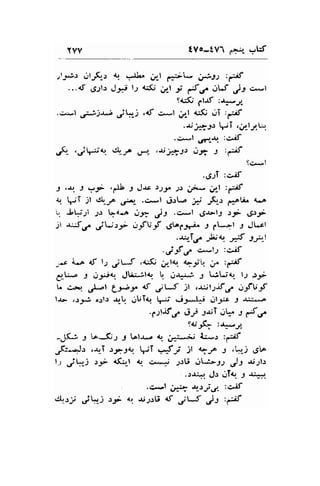 کتاب پنجم ۴۷۶-۴۷۵ ۲۷۷
گفتم: روشن ساختیم این مطلب به دیگران دشوار
است ولی گمان می‌کنم تو این نکته را قبول داری که...
پرسید: کدام نکته؟
گفتم: آن نکته این است که، زیبائی ضدزشتی است.
بنابراین، آنها دوچیزند.
گفت: بدیهی است.
گفتم: و چون دوچیزند، پس هریك به‌تنهائی، یکی
است؟
گفت: آری.
گفتم: این سخن در مورد عدل و ظلم، و خوب و بد، و
همه مفاهیم دیگر نیز صادق است. یعنی هریك از آنها به
خودی خود واحدی است. ولی چون همه‌جا در ارتباط با
اعمال و اجسام و مفهوم‌های گوناگون خودنمائی می‌کنند از
اینرو کثیر به‌نظر می‌آیند.
گفت: راست می‌گوئی.
گفتم: من باتوجه به‌این نکته، کسانی را که همهٔ عمر
خود را به‌تماشا و شنیدن یا به‌اشتغال به‌فنون و صنایع
گوناگون می‌گذرانند، از کسانی که موضوع اصلی بحث ما
هستند و عنوان فیلسوف تنها به‌آنان باید داده شود، جدا
می‌کنم و میان آندو فرق می‌گذارم.
پرسید: چگونه؟
گفتم: دستهٔ نخستین به صداها و رنگ‌ها و شکل-
های زیبا، و هرچه از ترکیب آنها به‌وجود آید، دلبستگی
دارند ولی روحشان قادر نیست به اینکه خود زیبائی را
ببیند و به‌آن دل ببندد.
گفت: بی‌تردید چنین است.
گفتم: ولی کسانی که قادرند به خود زیبائی نزدیك